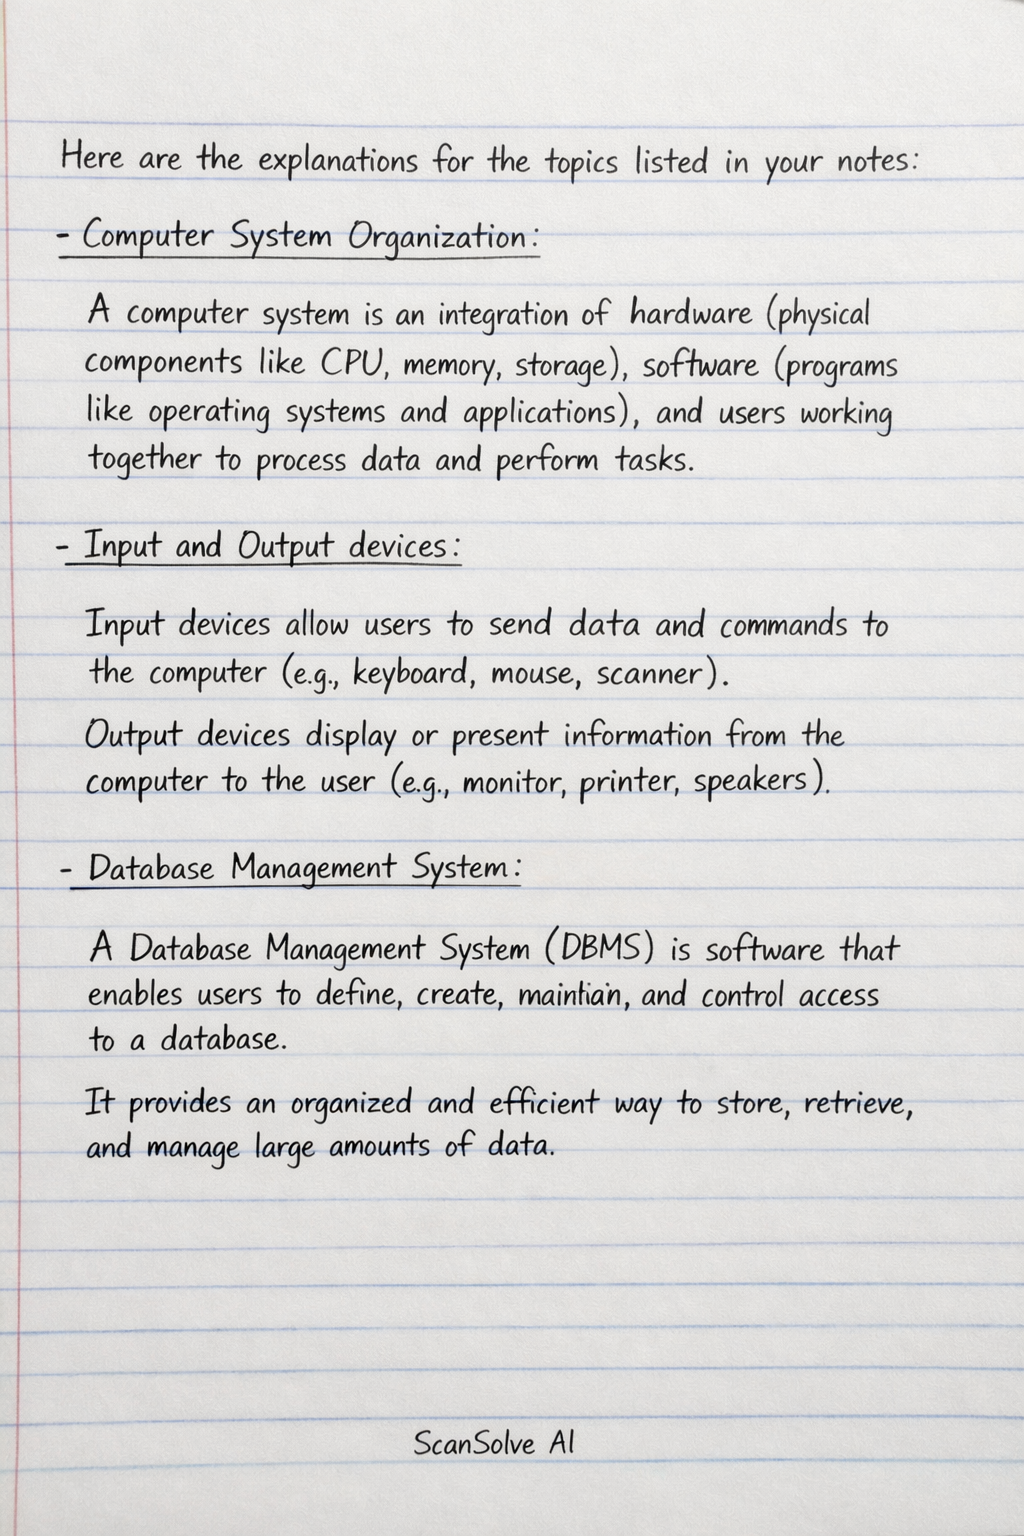 Here are the explanations for the topics listed in your notes:
- Computer System Organization:
A computer system is an integration of hardware (physical
components like CPU, memory, storage), software (programs
like operating systems and applications), and users working
together to process data and perform tasks.
- Input and Output devices:
Input devices allow users to send data and commands to
the computer (e.g., keyboard, mouse, scanner).
Output devices display or present information from the
computer to the user (e.g., monitor, printer, speakers).
- Database Management System:
A Database Management System (DBMS) is software that
enables users to define, create, and control access
to a database.
It provides an organized and efficient way to store, retrieve,
and manage large amounts of data.
ScanSolve AI